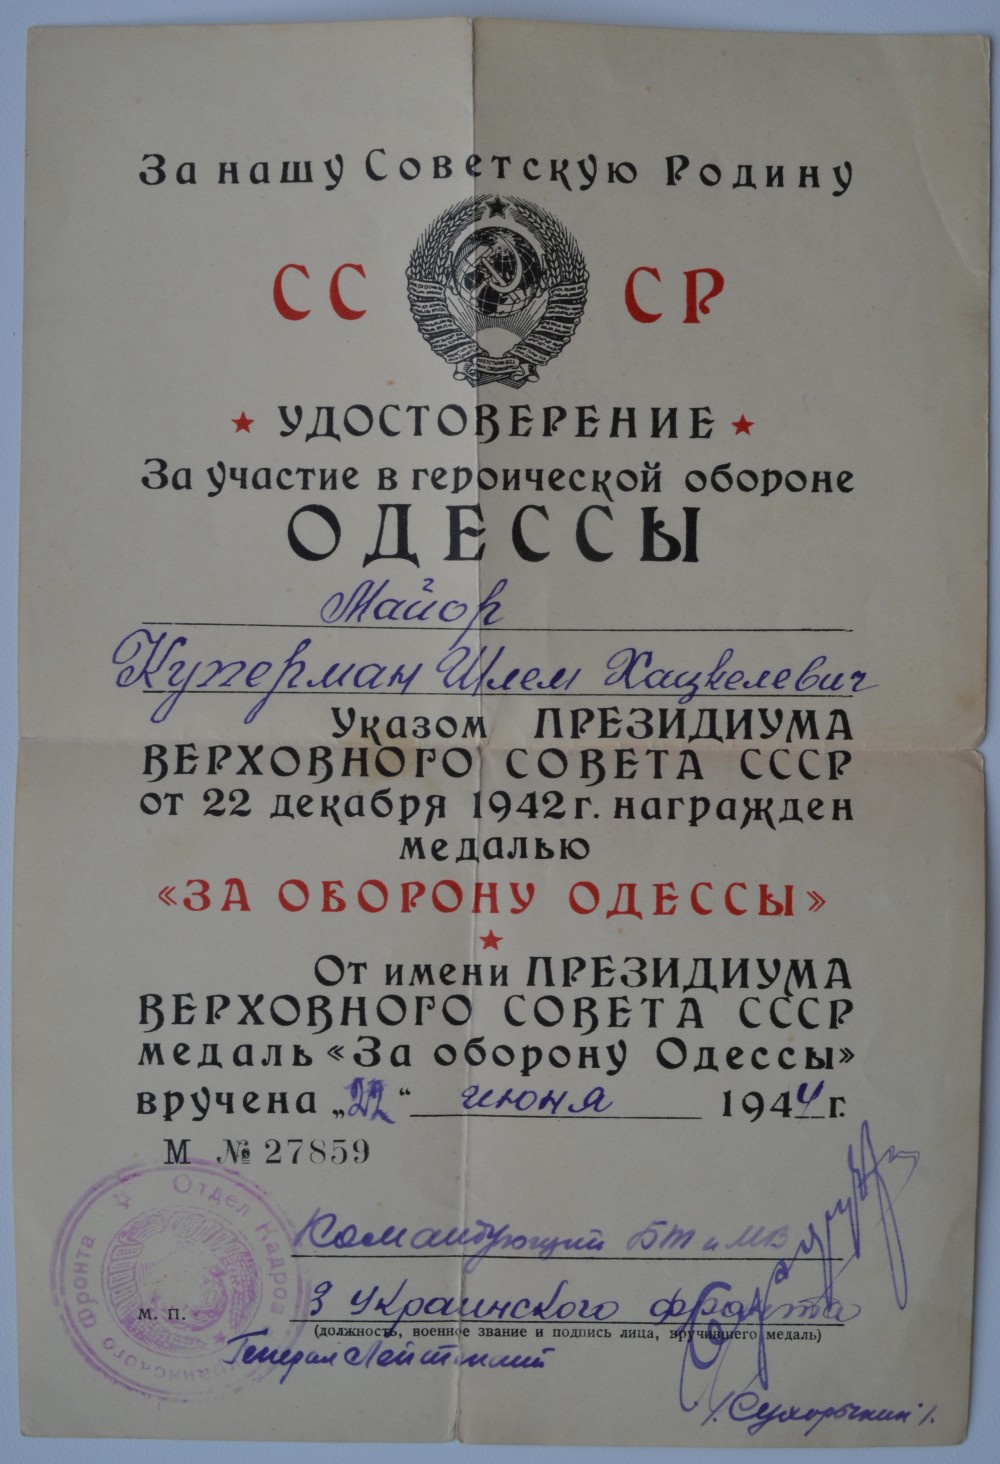 За нашу Советскую Родину
СС СР
УДОСТОВЕРЕНИЕ
За участие в героической обороне
ОДЕССЫ
Майор
Куперман Шлем Хацкелевич
Указом ПРЕЗИДИУМА
ВЕРХОВНОГО СОВЕТА СССР
от 22 декабря 1942 г. награжден
медалью
«ЗА ОБОРОНУ ОДЕССЫ»
От имени ПРЕЗИДИУМА
ВЕРХОВНОГО СОВЕТА СССР
медаль «За оборону Одессы»
вручена „22“ июня 1944 г.
М № 27859
Отдел Кадров
Украинского фронта
Командующий БТ и МВ
м. п. 3 Украинского фронта
(должность, военное звание и подпись лица, вручившего медаль)
Генерал Лейтенант
/Сухоручкин/.